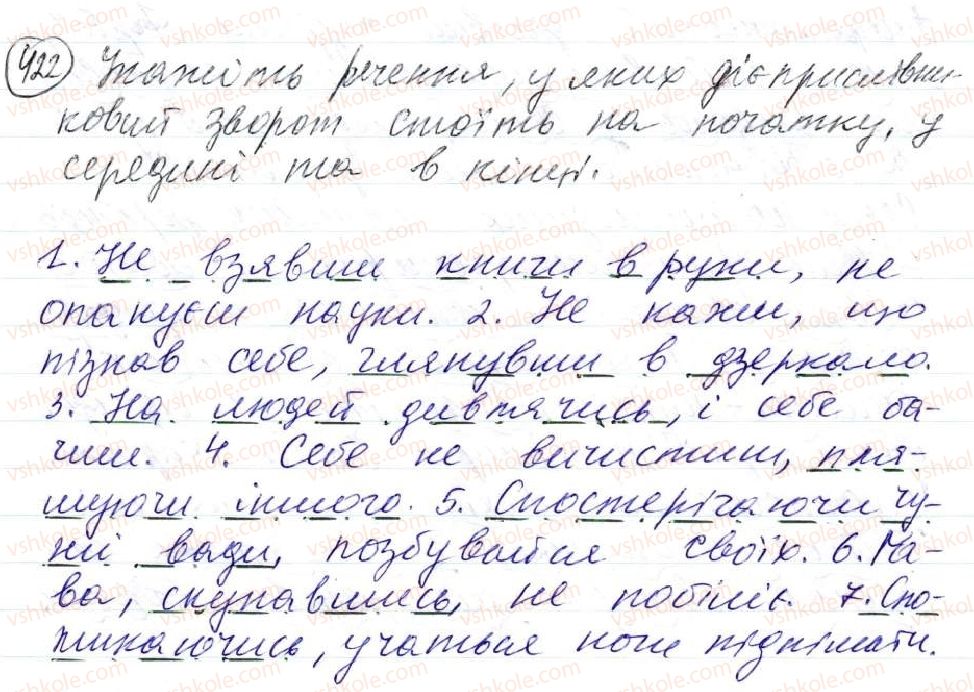 422 Укажіть речення, у яких дієприслівни-
ковий зворот стоїть на початку, у
середині та в кінці.
1. Не взявши книги в руки, не
опануєш науки. 2. Не кажи, що
пізнав себе, глянувши в дзеркало.
3. На людей дивлячись, і себе ба-
чиш. 4. Себе не вичистиш, пля-
муючи іншого. 5. Спостерігаючи чу-
жі вади, позбувайся своїх. 6. Га-
ва, скупавшись, не побіліє. 7. Спо-
тикаючись, учаться ноги піднімати.